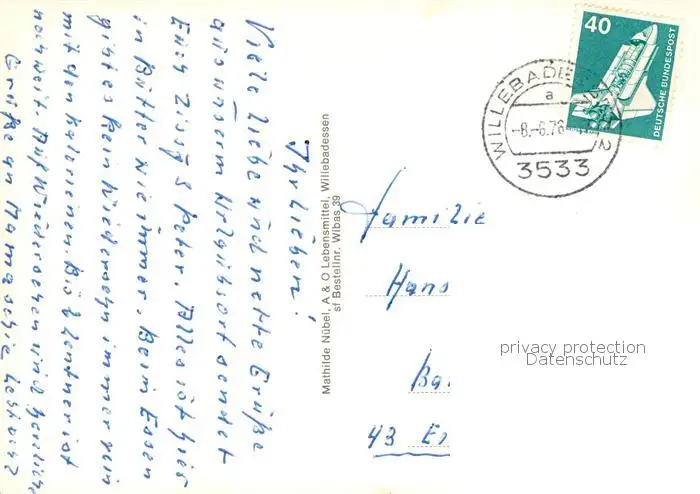 Ihr Lieben!
Viele liebe und nette Grüße
aus unserm Urlaubsort sendet
Euch Zissy & Peter. Alles ist hier
in Butter wie immer. Beim Essen
gibt es kein Widersehn immer rein
mit den Kalorien Bis Zentner ist
noch weit. Auf Wiedersehen und herzliche
Grüße an Mama
Mathilde Nübel, A & O Lebensmittel, Willebadessen
sf Bestellnr. Wibas 39
40
DEUTSCHE BUNDESPOST
WILLEBADE
a
-8.-6.76
2
3533
Familie
Hans
Ba
43 E
privacy protection
Datenschutz